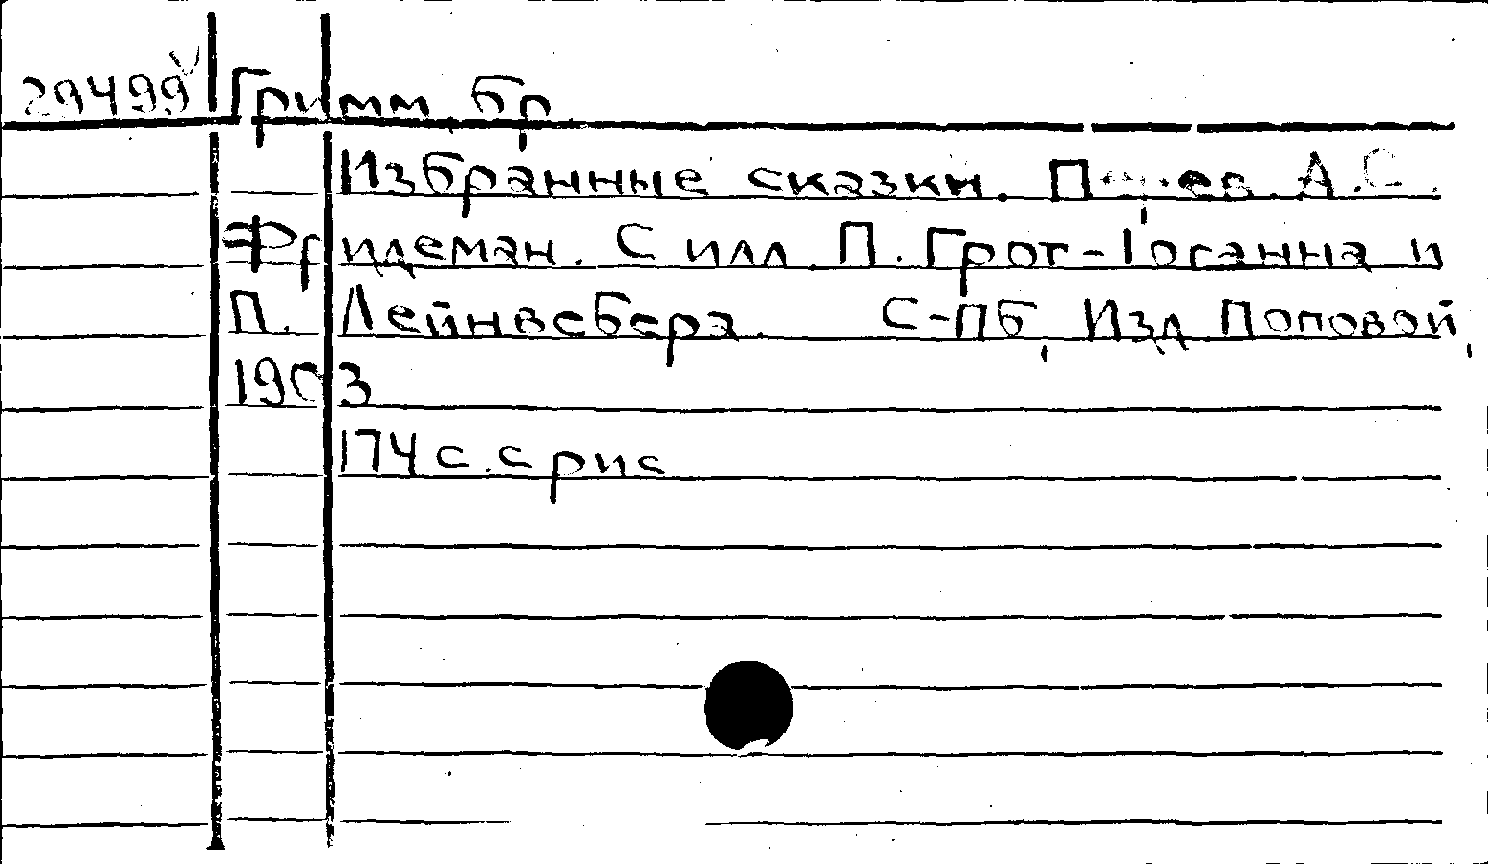 29499 Гримм, бр.
Избранные сказки. А.С.
Фридеман. С илл П. Грот-Іоганна и
П. Лейнвебера. С-ПБ, Изд Поповой,
1903
174 с. с рис